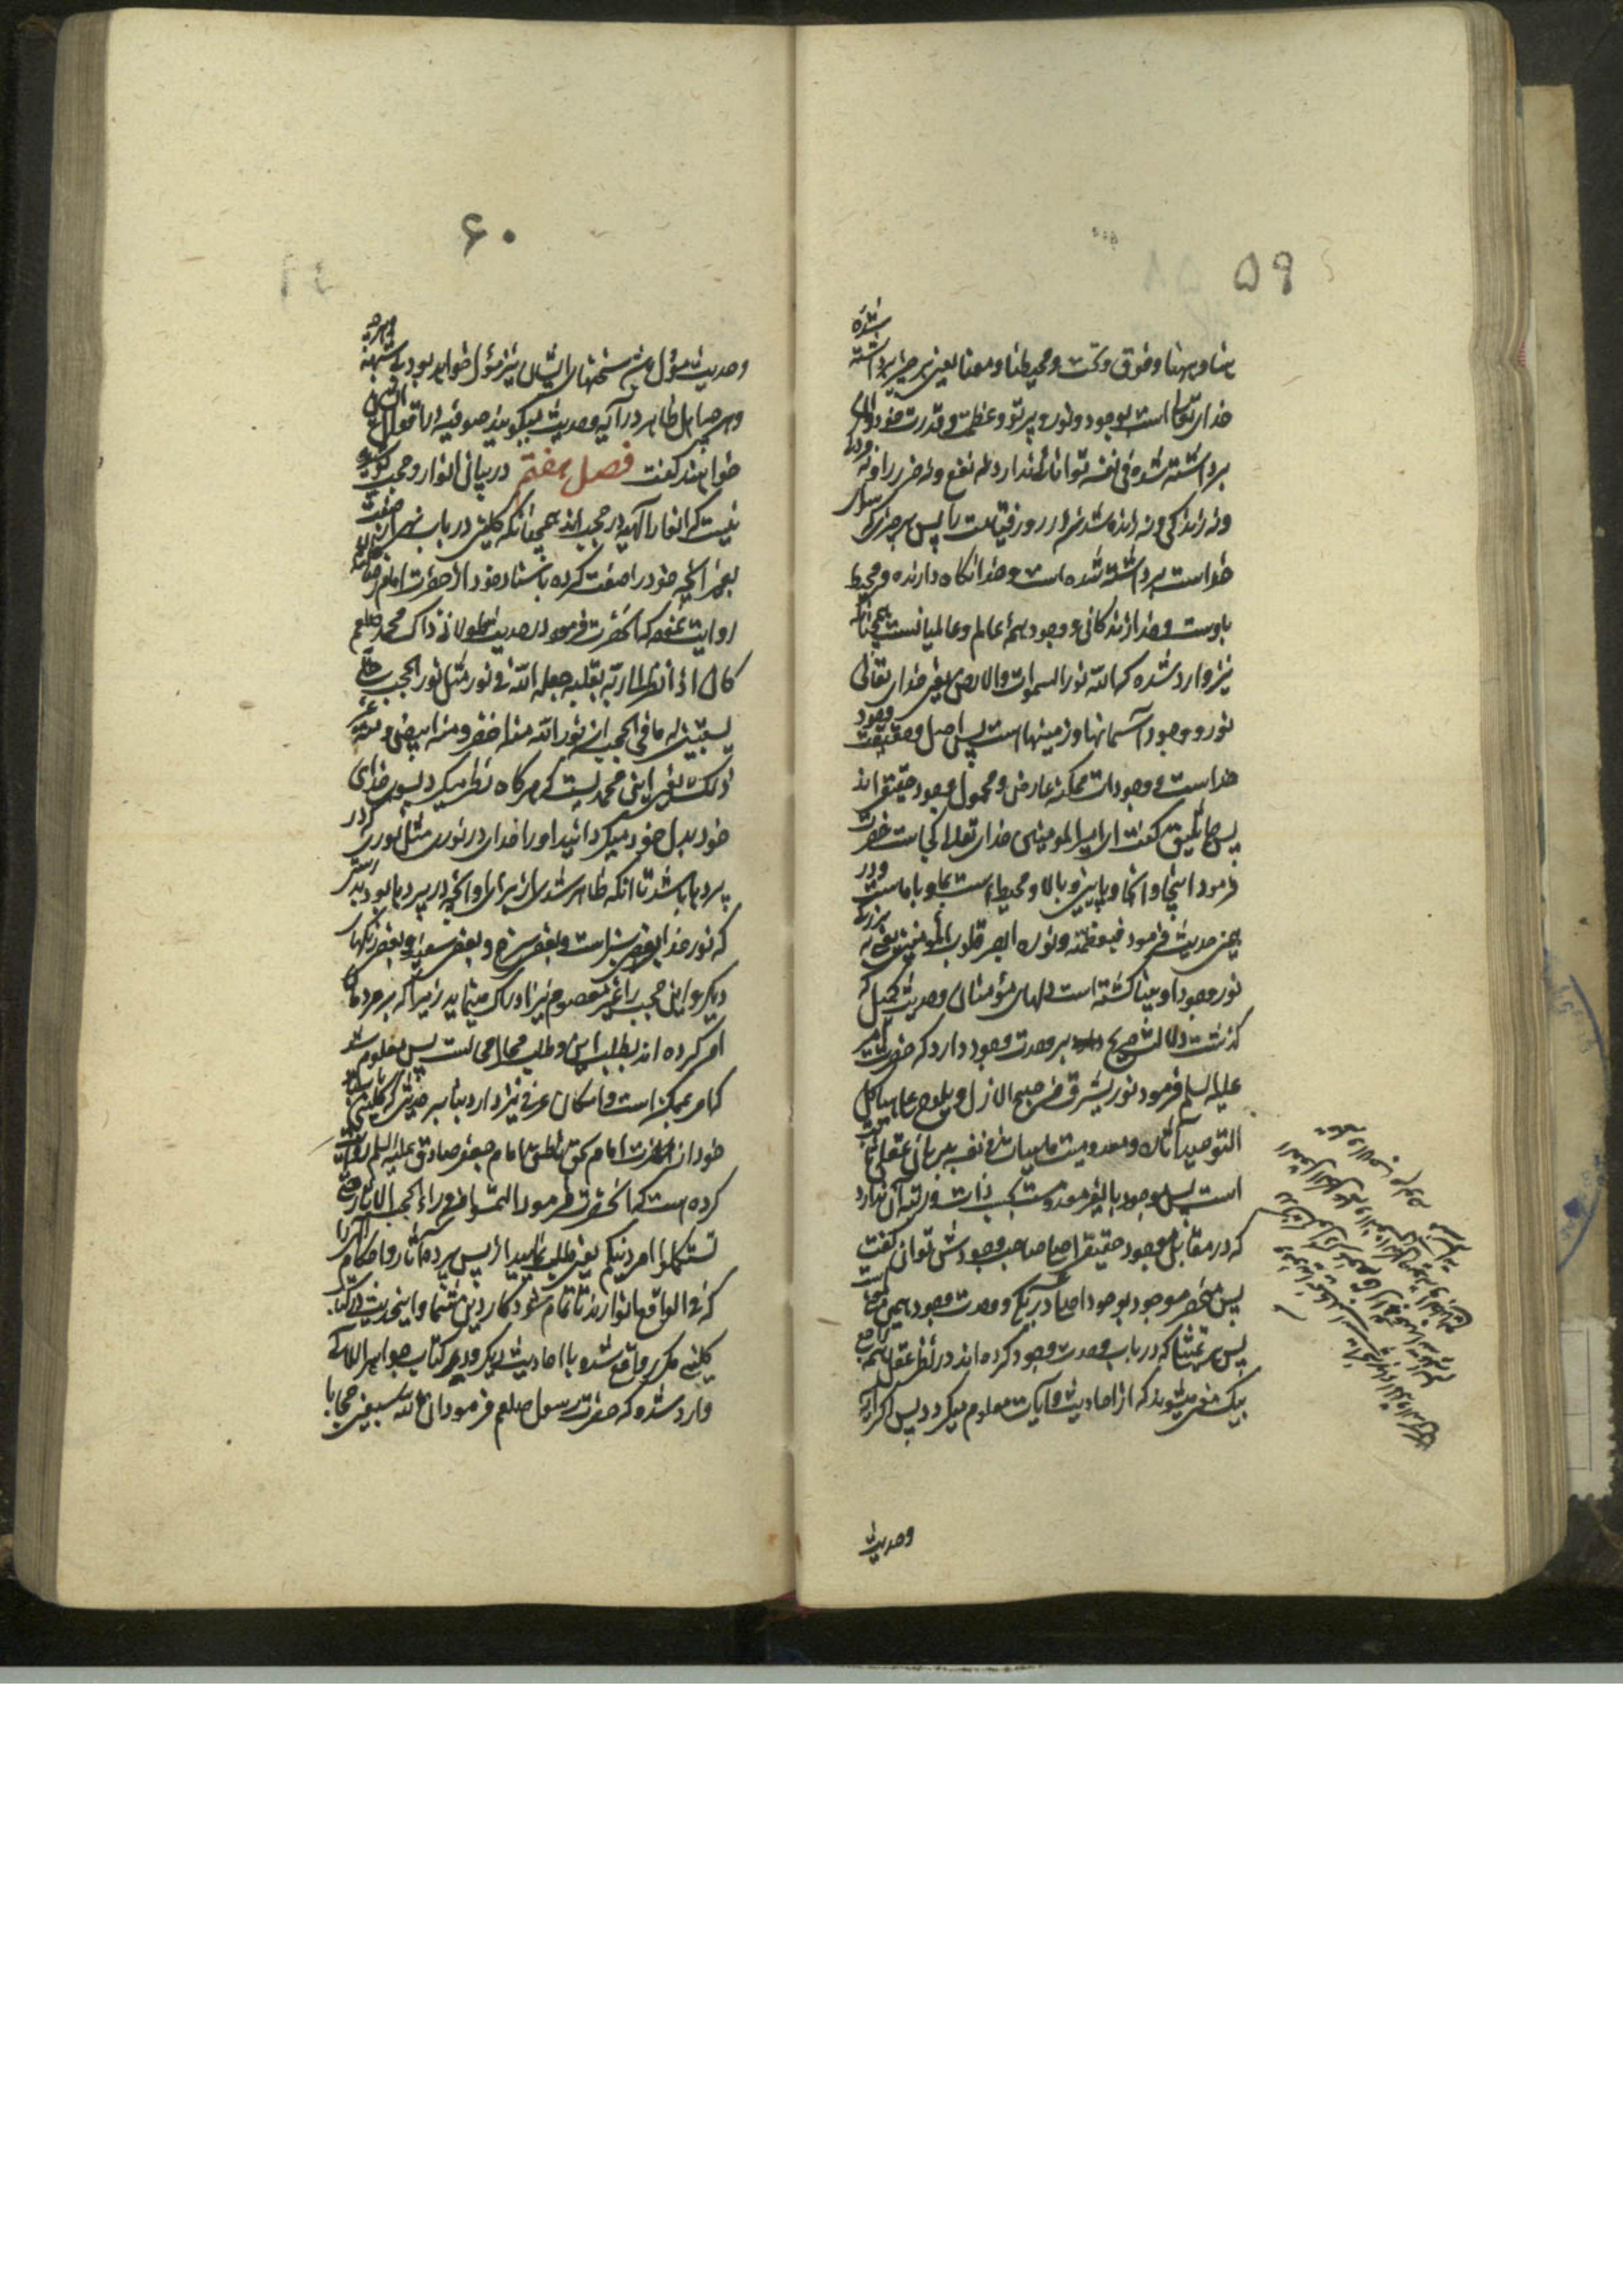 ۵۹
هنا و هیهنا و فوق و تحت و محیط بنا و معنا یعنی هر چیز برداشته شده
خدای تعالی است بوجود و نور و پرتو و عظمت و قدرت خود و آن
برداشته شده فی نفسه توانائی ندارد نه نفع و نه ضرر را و نه مردگی
و نه زندگی و نه زنده شدن را در روز قیامت پس هر چیز که سوای
خداست برداشته شده است و خدا نگاه دارنده و محیط
باوست و خدا زندگانی و وجود همه عالم و عالمیانست همچنانکه
نیز وارد شده که الله نور السموات والارض یعنی خدای تعالی
نور و وجود آسمانها و زمینهاست پس اصل و حقیقت وجود
خداست و وجودات ممکنه عارض و محمول وجود حقیقی‌اند
پس جاثلیق گفت ای امیرالمومنین خدای تعالی کجاست حضرت
فرمود اینجا و آنجا و پایین و بالا و محیط است بما و با ماست و در
همین حدیث فرمود فبعظمته و نوره ابصر قلوب المؤمنین یعنی به بزرگی
نور وجود او بینا گشته است دلهای مؤمنان و حدیث کمیل که
گذشت دلالت صریح بر وحدت وجود دارد که حضرت امیر
علیه السلم فرمود نور یشرق من صبح الازل و یلوح علی هیاکل
التوحید آثاره و معدومیت ماهیات فی نفسه ببرهان عقلی ثابت
است پس موجود بالغیر معدومست بحسب ذات و رتبه آن ندارد
که در مقابل موجود حقیقی اصلا صاحب وجودش توان گفت
پس منحصر موجود بوجود اصلا در یکی و وحدت وجود همین معنی است
پس تمثیلها که در باب وحدت وجود کرده‌اند در نظر عقل همه راجع
بیک معنی میشوند که از احادیث و آیات معلوم میگردد پس اگر آیه
وحدیث
۶۰
وحدیث مؤول سخنهای ایشان نیز مؤول خواهد بود بی شبهه
و هر چه اهل ظاهر در آیه و حدیث میگویند صوفیه را قول
خواهند گفت فصل هفتم در بیان انوار و حجب
نیست که انوار الهیه در حجب‌اند همچنانکه کلینی در باب نهی از صفت
بغیر آنچه خود را صفت کرده باسناد خود از حضرت امام رضا
روایت نموده که آنحضرت فرمود در حدیث طولانی ذاک محمد صلعم
کان اذا نظر الی ربه بقلبه جعله الله فی نور مثل نور الحجب حتی
یستبین له ما فی الحجب ان نور الله منه اخضر و منه ابیض و منه غیر
ذلک یعنی این محمد است که هر گاه نظر میکرد بسوی خدای
خود بدل خود میگردانید او را خدا در نوری مثل نوری که در
پردها باشد تا آنکه ظاهر شدی از برای او آنچه در پردها بود
که نور خدا بعضی سبز است و بعضی سرخ و بعضی سفید و بعضی رنگهای
دیگر و این حجب را غیر معصوم نیز ادراک مینماید زیرا که بمردمان
امر کرده‌اند بطلب این و طلب محال محالست پس معلوم شد
که امر ممکن است و امکان عرفی نیز دارد بنا بر حدیثی که کلینی باسناد
خود از حضرت امام بحق ناطق امام جعفر صادق علیه السلم روایت
کرده است که آنحضرت فرمود التمسوا من وراء الحجب الاثار
تستکملوا امر دینکم یعنی طلب نمایید از پس پرده آثار و احکام را
که فی الواقع انوارند تا تمام شود کار دین شما و اینحدیث در کتاب
کلینی مکرر واقع شده با احادیث دیگر و در کتاب جواهر
وارد شده که حضرت رسول صلعم فرمود ان لله سبعین حجابا